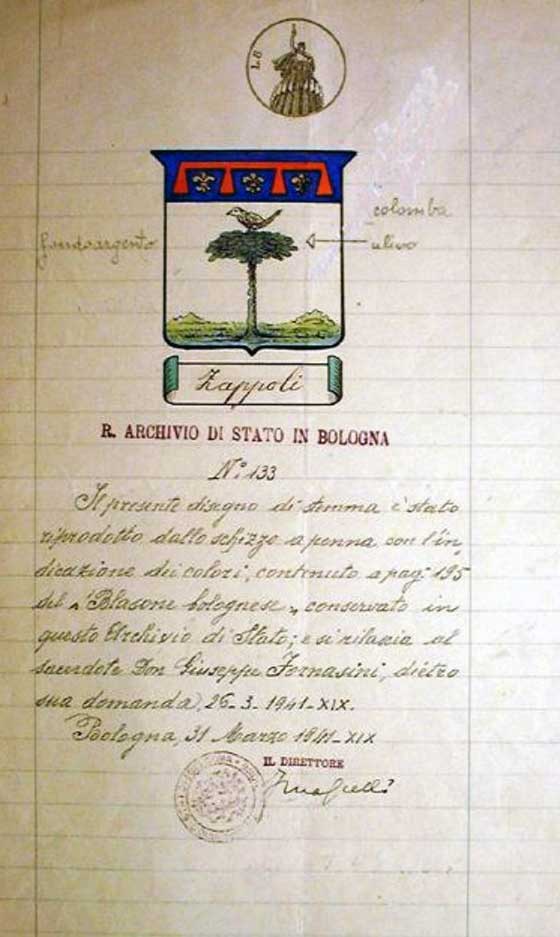 L. 8
colomba
fondoargento
ulivo
Zappoli
R. ARCHIVIO DI STATO IN BOLOGNA
N.º 133
Il presente disegno di stemma è stato
riprodotto dallo schizzo a penna con l'in-
dicazione dei colori, contenuto a pag. 195
del "Blasone bolognese" conservato in
questo Archivio di Stato; e si rilascia al
sacerdote Don Giuseppe Fornasini, dietro
sua domanda, 26-3-1941-XIX.
Bologna, 31 Marzo 1941-XIX
IL DIRETTORE